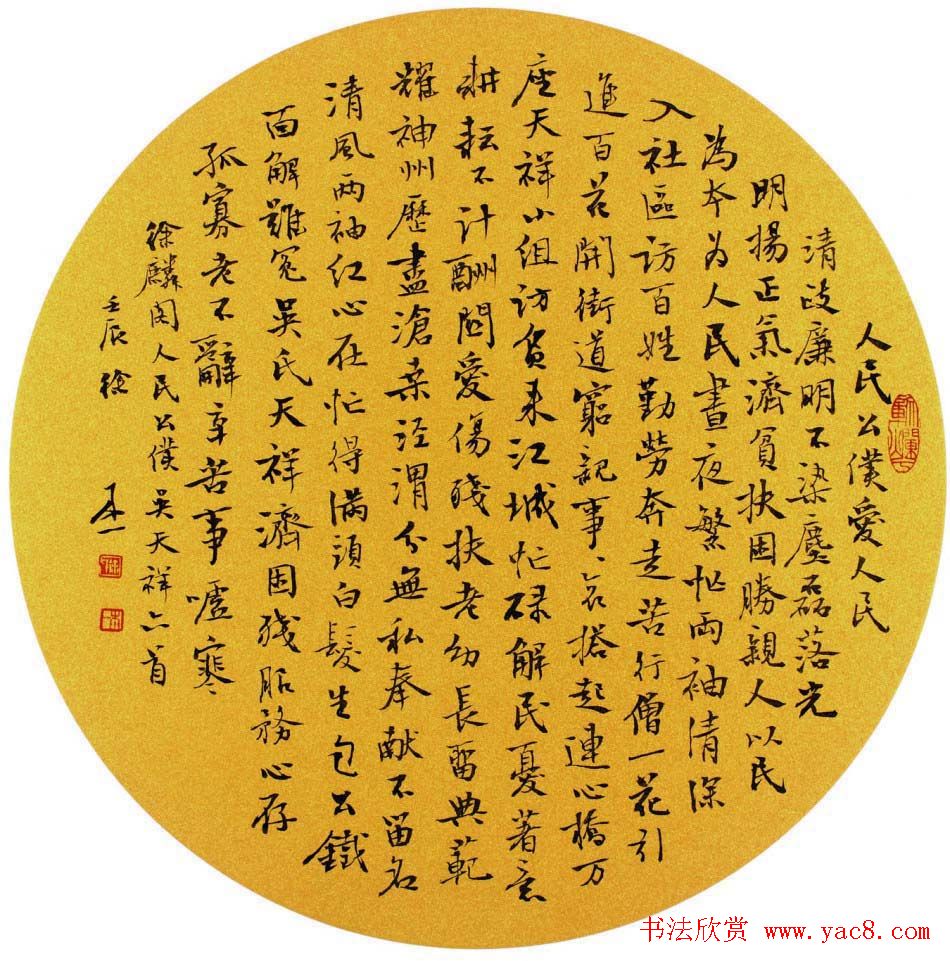 人民公僕愛人民
清政廉明不染塵磊落光
明揚正氣濟貧扶困勝親人以民
為本为人民晝夜繁忙両袖清深
入社區访百姓勤勞奔走苦行僧一花引
進百花開街道窮親事、哀搭起連心橋万
座天祥小组訪贫来江城忙碌解民憂著意
耕耘不计酬關愛傷殘扶老幼長留典範
耀神州歷盡滄桑涇渭分無私奉献不留名
清風两袖红心在忙得满頭白髮生包公鐵
面解難冤吴氏天祥濟困殘服務心存
孤寡老不辭辛苦事噓寒
徐麟阁人民公僕吴天祥六首
壬辰 徐
书法欣赏 www.yac8.com